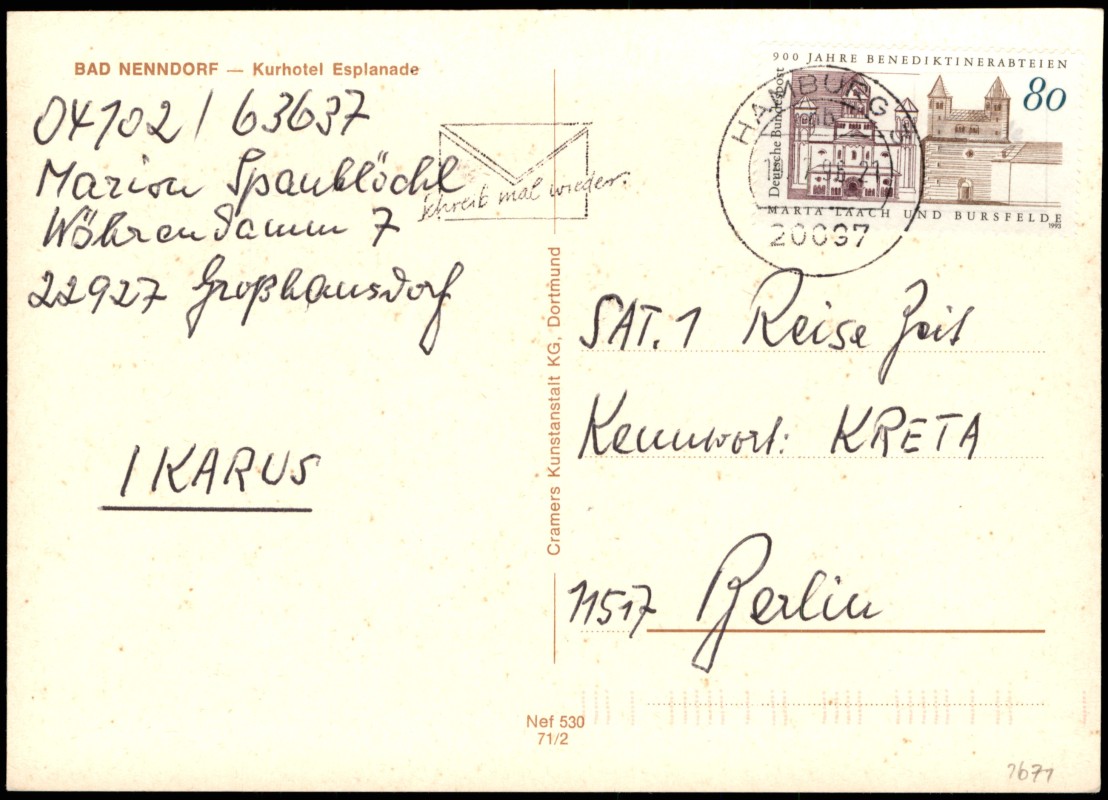 BAD NENNDORF — Kurhotel Esplanade
04102 / 63637
Marion Spaublöchl
Wöhrendamm 7
22927 Großhansdorf
IKARUS
schreib mal wieder.
Cramers Kunstanstalt KG, Dortmund
Nef 530
71/2
900 JAHRE BENEDIKTINERABTEIEN
80
Deutsche Bundespost
MARIA LAACH UND BURSFELDE
1993
HAMBURG
20097
SAT.1 Reise Zeit
Kennwort: KRETA
11517 Berlin